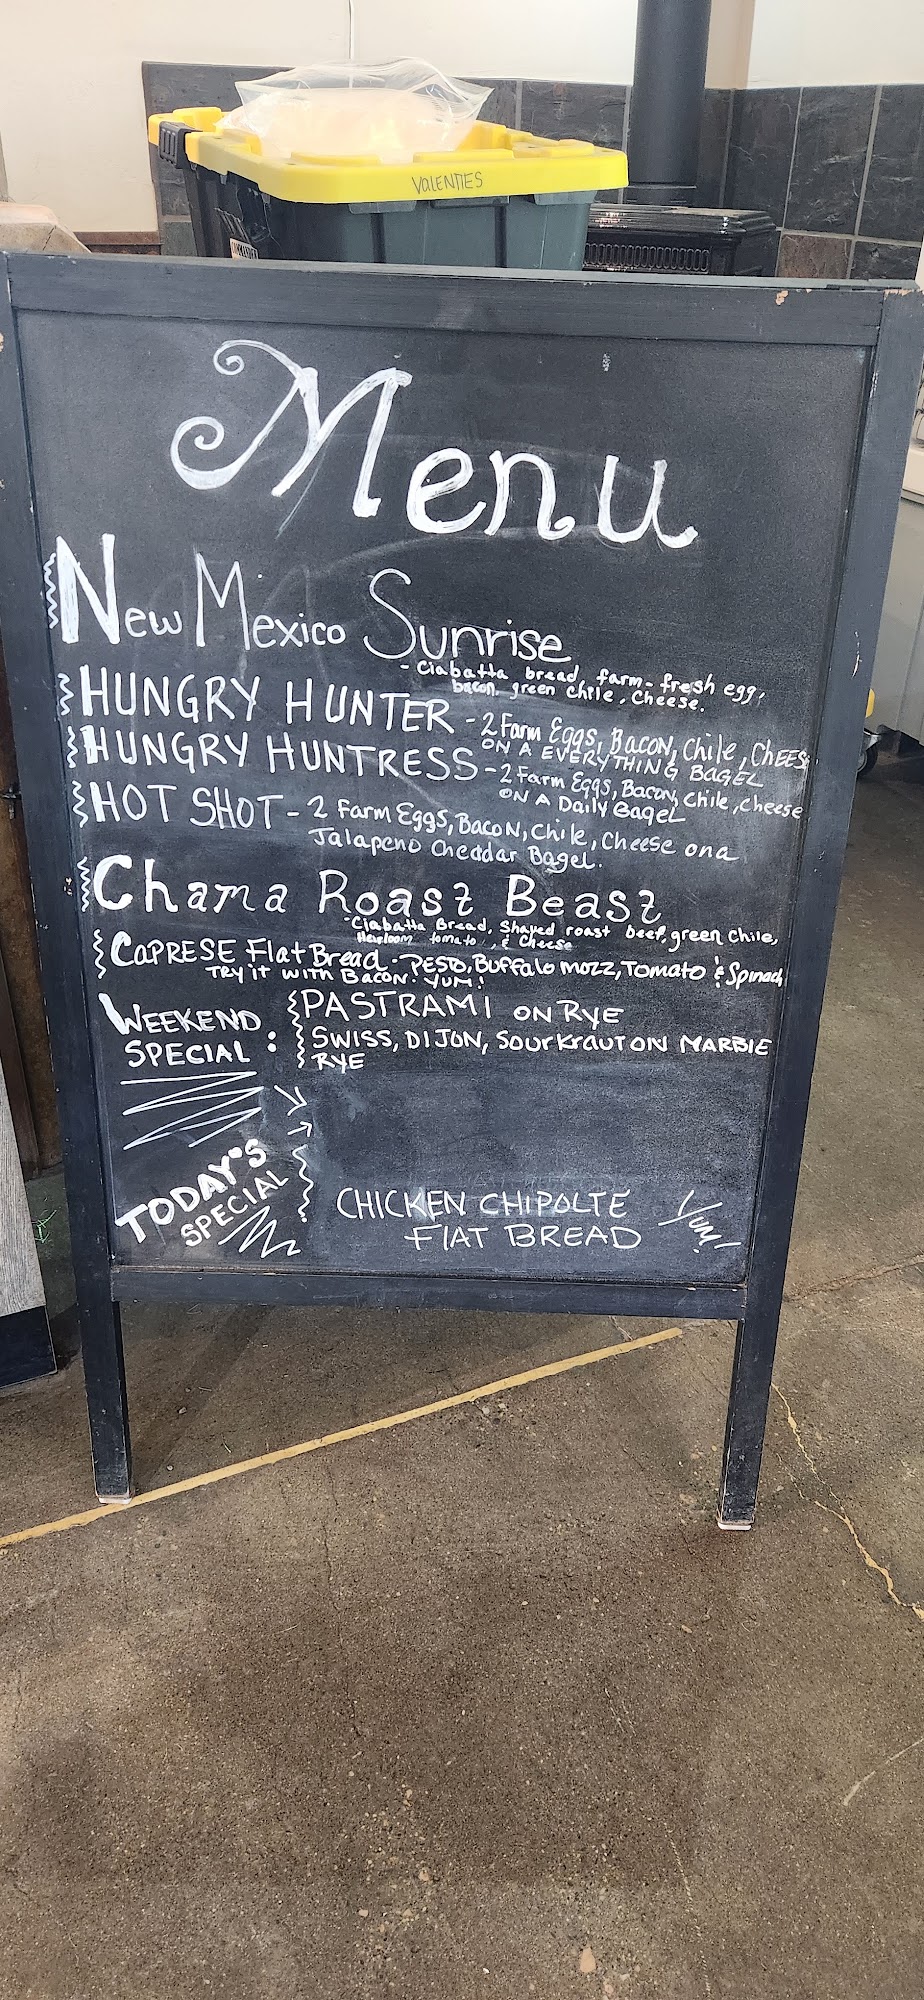 VALENTIES
Menu
New Mexico Sunrise
- Ciabatta bread, farm-fresh egg,
bacon, green chile, cheese.
HUNGRY HUNTER - 2 Farm Eggs, Bacon, Chile, Cheese
ON A EVERYTHING BAGEL
HUNGRY HUNTRESS - 2 Farm Eggs, Bacon, Chile, Cheese
ON A Daily Bagel
HOT SHOT - 2 Farm Eggs, Bacon, Chile, Cheese on a
Jalapeno Cheddar Bagel.
Chama Roast Beast
- Ciabatta Bread, Shaved roast beef, green Chile,
Heirloom tomato, & Cheese
CAPRESE Flat Bread - PESTO, Buffalo mozz, Tomato & Spinach
TRY IT WITH BACON. YUM!
WEEKEND
SPECIAL :
PASTRAMI ON RYE
SWISS, DIJON, Sourkraut ON MARBLE
RYE
TODAY'S
SPECIAL
CHICKEN CHIPOLTE
FLAT BREAD
Yum!